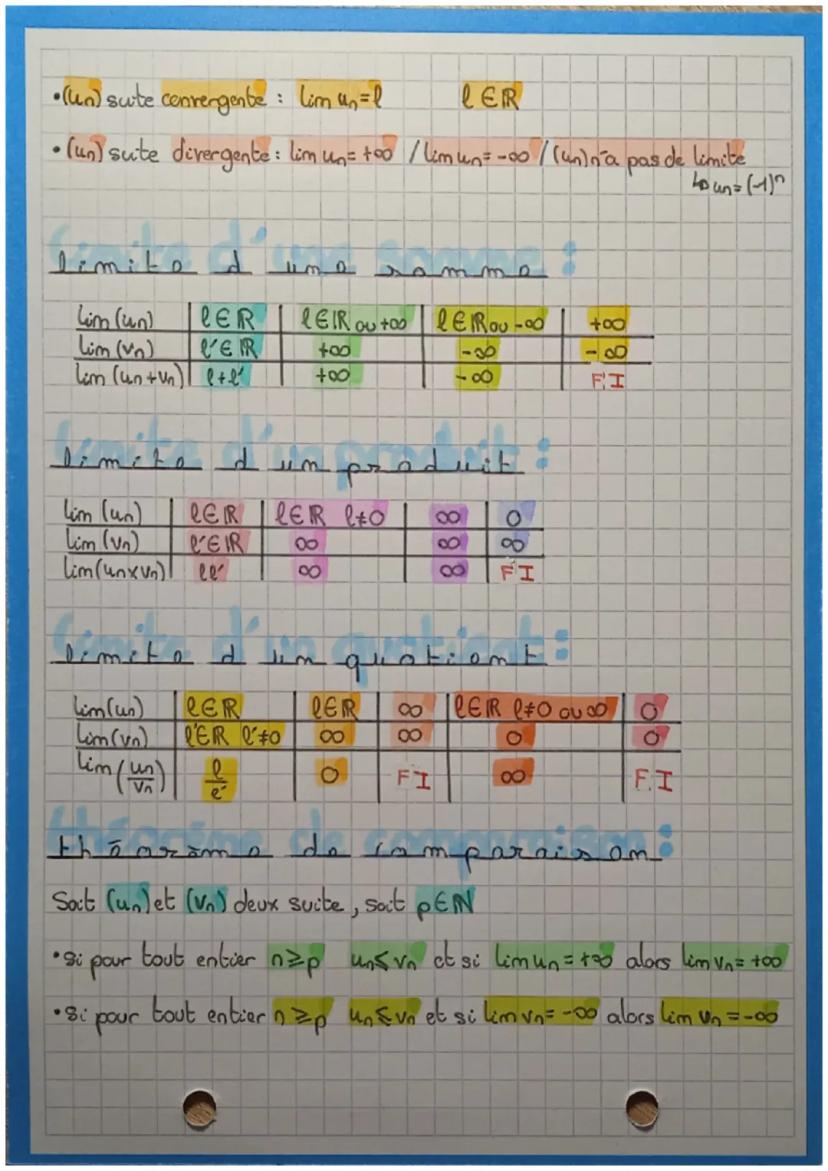 • (un) suite convergente : lim un = l l ∈ ℝ
• (un) suite divergente : lim un = +∞ / lim un = -∞ / (un) n'a pas de limite
↳ un = (-1)ⁿ
limite d'une somme :
lim (un) | l ∈ ℝ | l ∈ ℝ ou +∞ | l ∈ ℝ ou -∞ | +∞
lim (vn) | l' ∈ ℝ | +∞ | -∞ | -∞
lim (un+vn) | l+l' | +∞ | -∞ | F.I
limite d'un produit :
lim (un) | l ∈ ℝ | l ∈ ℝ l≠0 | ∞ | 0
lim (vn) | l' ∈ ℝ | ∞ | ∞ | ∞
lim (un×vn) | ll' | ∞ | ∞ | F I
limite d'un quotient :
lim (un) | l ∈ ℝ | l ∈ ℝ | ∞ | l ∈ ℝ l≠0 ou ∞ | 0
lim (vn) | l' ∈ ℝ l'≠0 | ∞ | ∞ | 0 | 0
lim (un/vn) | l/l' | 0 | F I | ∞ | F.I
théorème de comparaison :
Soit (un) et (vn) deux suite, soit p ∈ ℕ
• si pour tout entier n ≥ p un ≤ vn et si lim un = +∞ alors lim vn = +∞
• si pour tout entier n ≥ p un ≤ vn et si lim vn = -∞ alors lim un = -∞